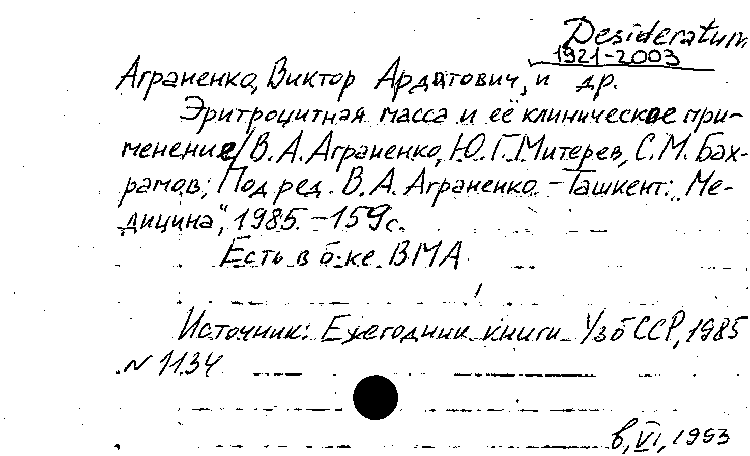 Desideratum
1921-2003
Аграненко, Виктор Ардатович, и др.
Эритроцитная масса и её клиническое при-
менение / В. А. Аграненко, Ю. Г. Митерев, С. М. Бах-
рамов; Под ред. В. А. Аграненко. - Ташкент: „Ме-
дицина", 1985. - 159 с.
Есть в б-ке ВМА
Источник: Ежегодник книги УзбССР, 1985
N 1134
в, VI, 1993